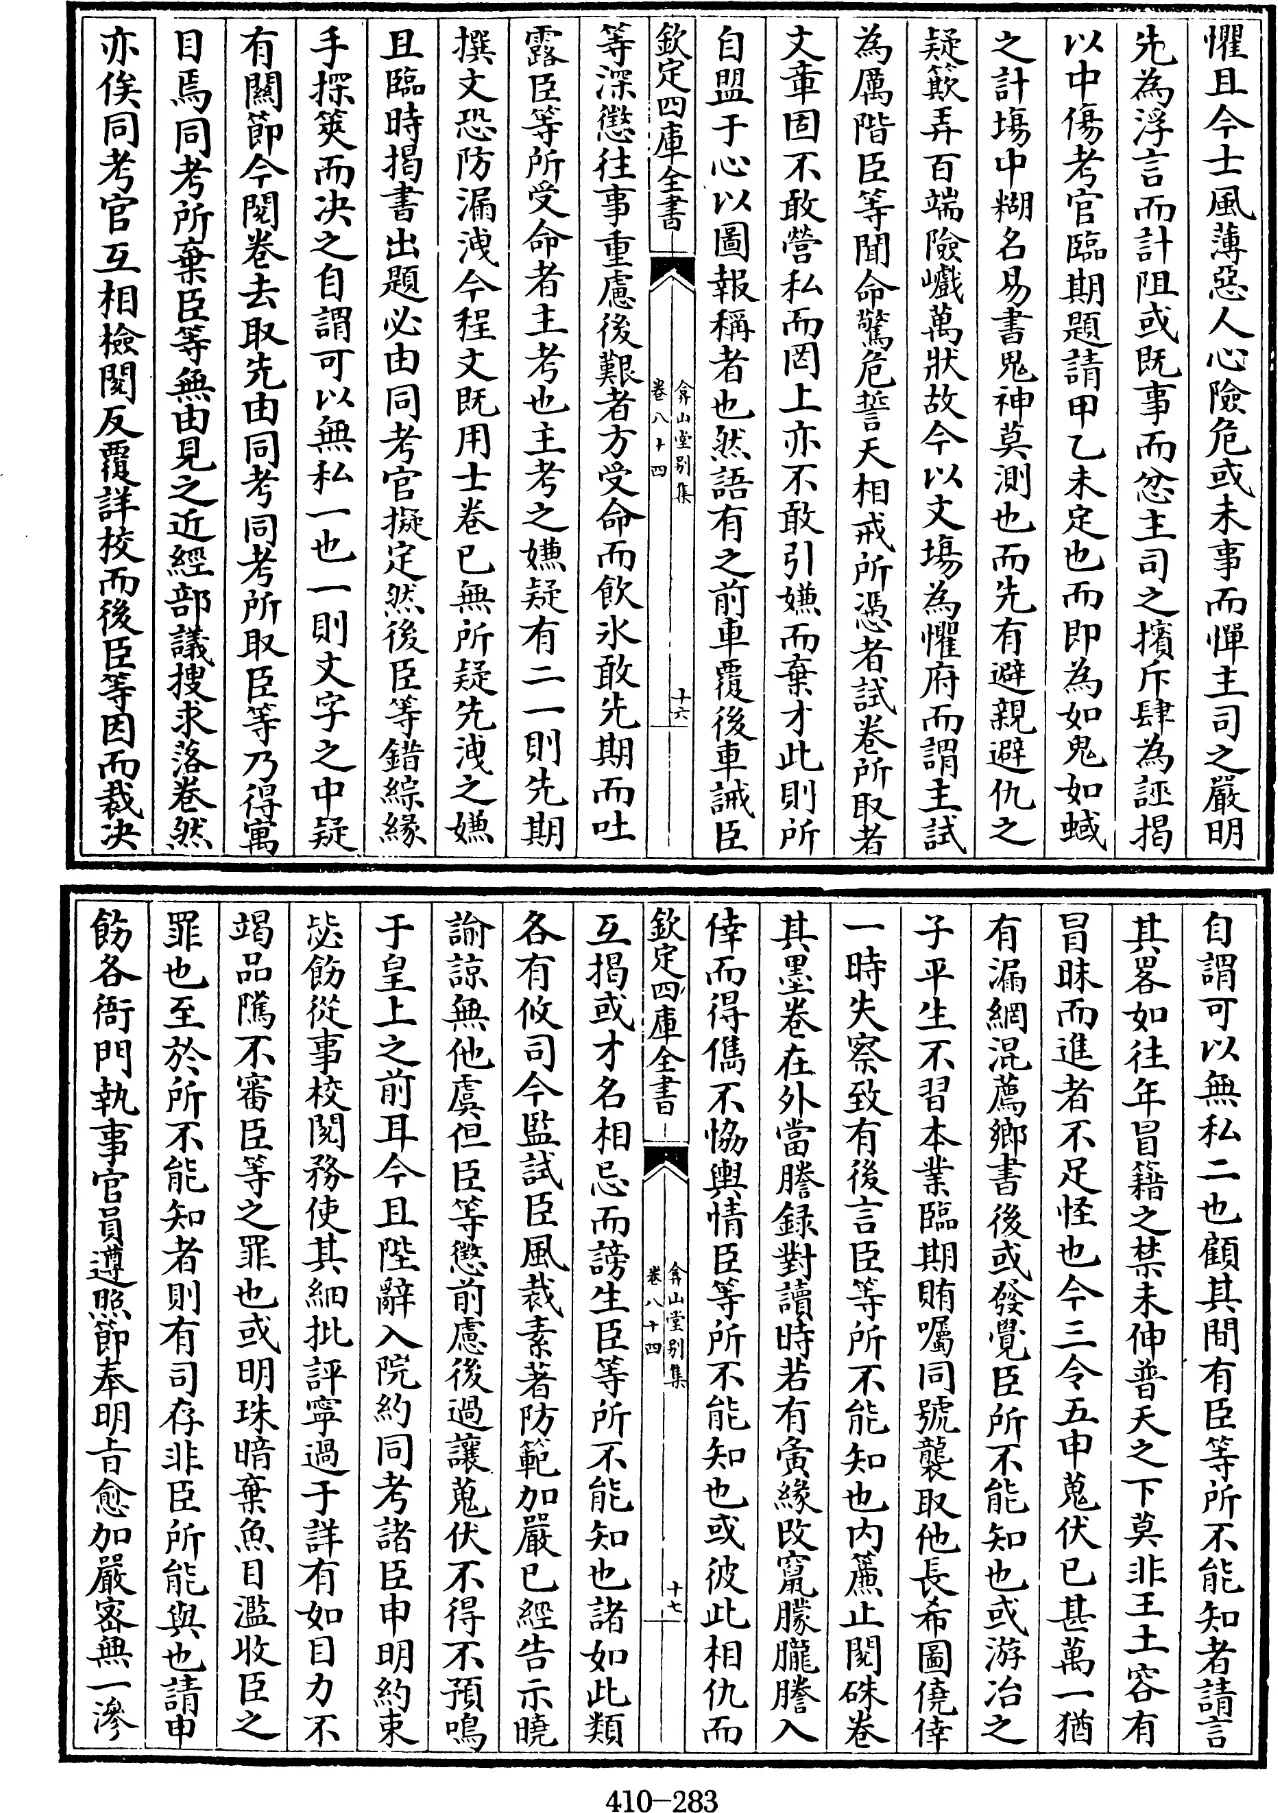 懼且今士風薄惡人心險危或未事而憚主司之嚴明
先為浮言而計阻或既事而忿主司之擯斥肆為誣揭
以中傷考官臨期題請甲乙未定也而即為如鬼如蜮
之計塲中糊名易書鬼神莫測也而先有避親避仇之
疑欺弄百端險巇萬狀故今以文塲為懼府而謂主試
為厲階臣等聞命驚危誓天相戒所憑者試卷所取者
文章固不敢營私而罔上亦不敢引嫌而棄才此則所
自盟于心以圖報稱者也然語有之前車覆後車誡臣
欽定四庫全書
弇山堂别集
卷八十四
十六
等深懲往事重慮後艱者方受命而飲氷敢先期而吐
露臣等所受命者主考也主考之嫌疑有二一則先期
撰文恐防漏洩今程文既用士卷已無所疑先洩之嫌
且臨時揭書出題必由同考官擬定然後臣等錯綜緣
手探筴而决之自謂可以無私一也一則文字之中疑
有關節今閱卷去取先由同考同考所取臣等乃得寓
目焉同考所棄臣等無由見之近經部議搜求落卷然
亦俟同考官互相檢閱反覆詳校而後臣等因而裁决
自謂可以無私二也顧其間有臣等所不能知者請言
其畧如往年冒籍之禁未伸普天之下莫非王土容有
冒昧而進者不足怪也今三令五申蒐伏已甚萬一猶
有漏網混薦鄉書後或發覺臣所不能知也或游冶之
子平生不習本業臨期賄囑同號襲取他長希圖僥倖
一時失察致有後言臣等所不能知也内簾止閱硃卷
其墨卷在外當謄錄對讀時若有夤緣改竄朦朧謄入
倖而得儁不恊輿情臣等所不能知也或彼此相仇而
欽定四庫全書
弇山堂别集
卷八十四
十七
互揭或才名相忌而謗生臣等所不能知也諸如此類
各有攸司今監試臣風裁素著防範加嚴已經告示曉
諭諒無他虞但臣等懲前慮後過讓蒐伏不得不預鳴
于皇上之前耳今且陛辭入院約同考諸臣申明約束
毖飭從事校閱務使其細批評寧過于詳有如目力不
竭品隲不審臣等之罪也或明珠暗棄魚目濫收臣之
罪也至於所不能知者則有司存非臣所能與也請申
飭各衙門執事官員遵照節奉明㫖愈加嚴密無一滲
410-283